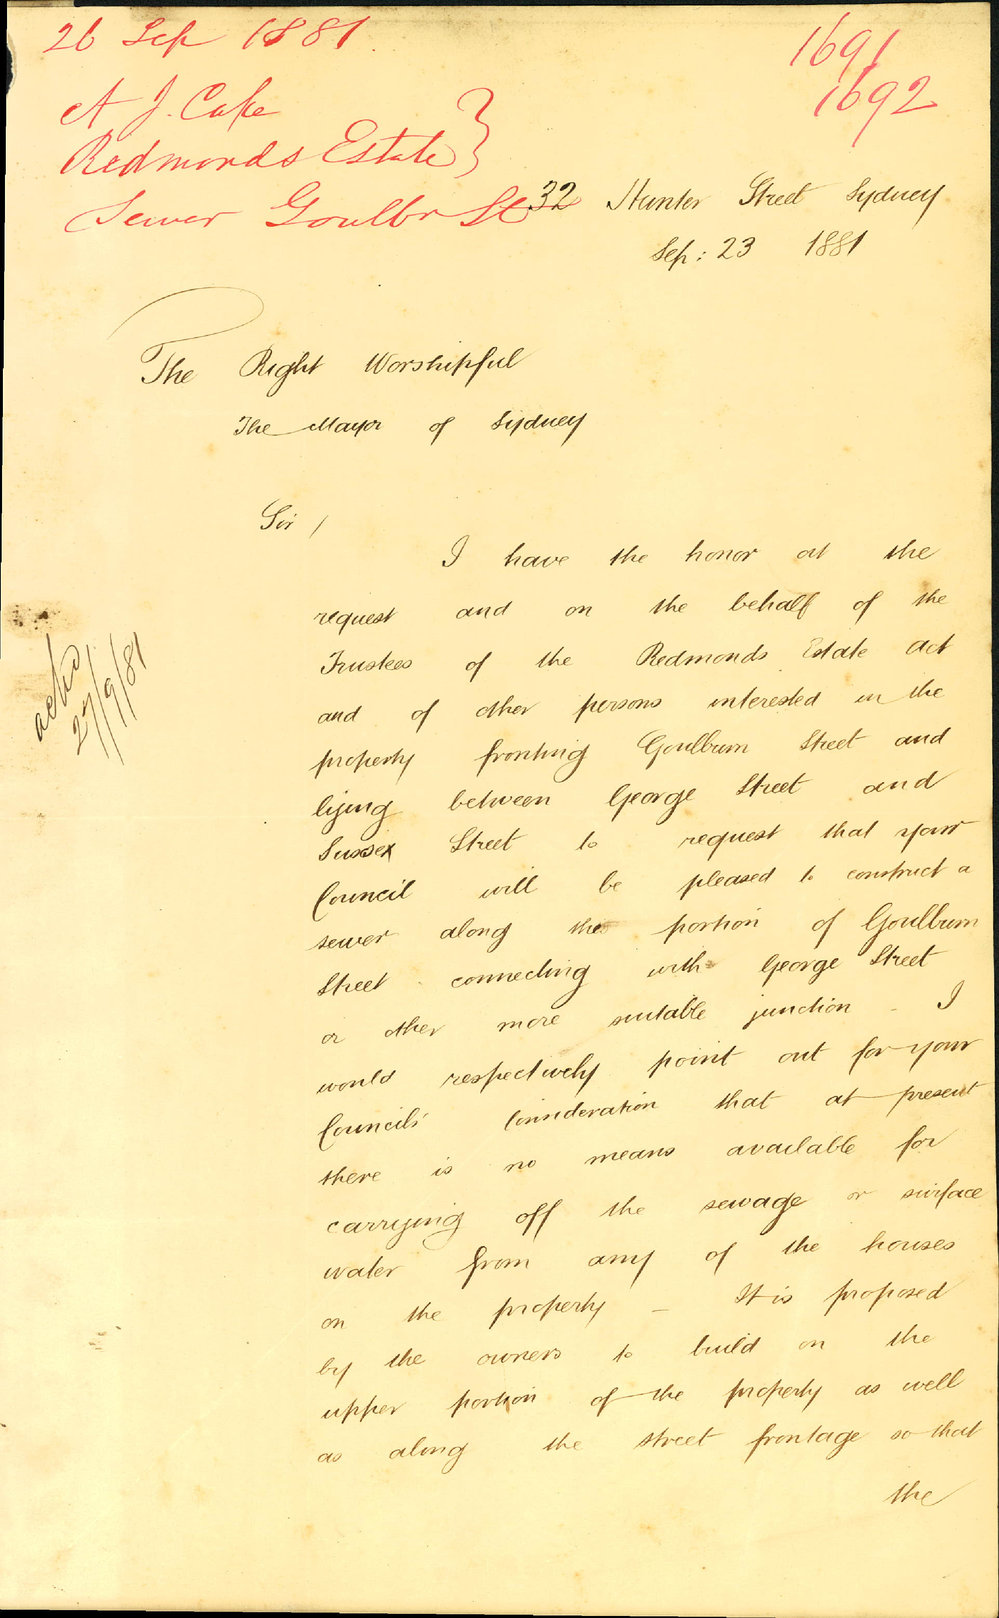 26 Sep 1881
1691
1692
A J. Cape
Redmonds Estate }
Sewer Goulbn St
32 Hunter Street Sydney
Sep: 23 1881
The Right Worshipful
The Mayor of Sydney
Sir /
I have the honor at the
request and on the behalf of the
Trustees of the Redmonds Estate Act
and of other persons interested in the
property fronting Goulburn Street and
lying between George Street and
Sussex Street to request that your
Council will be pleased to construct a
sewer along the portion of Goulburn
Street connecting with George Street
or other more suitable junction - I
would respectively point out for your
Councils' consideration that at present
there is no means available for
carrying off the sewage or surface
water from any of the houses
on the property - It is proposed
by the owners to build on the
upper portion of the property as well
as along the street frontage so that
the
ackd
27/9/81